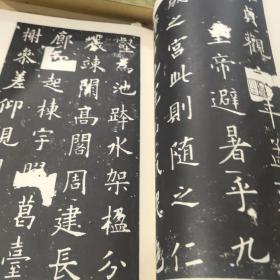 貞觀
皇帝避暑乎九
之宮此則隨之仁
壑為池跨水架楹分
巖竦闕高閣周建長
廊四起棟宇膠葛臺
榭參差仰視